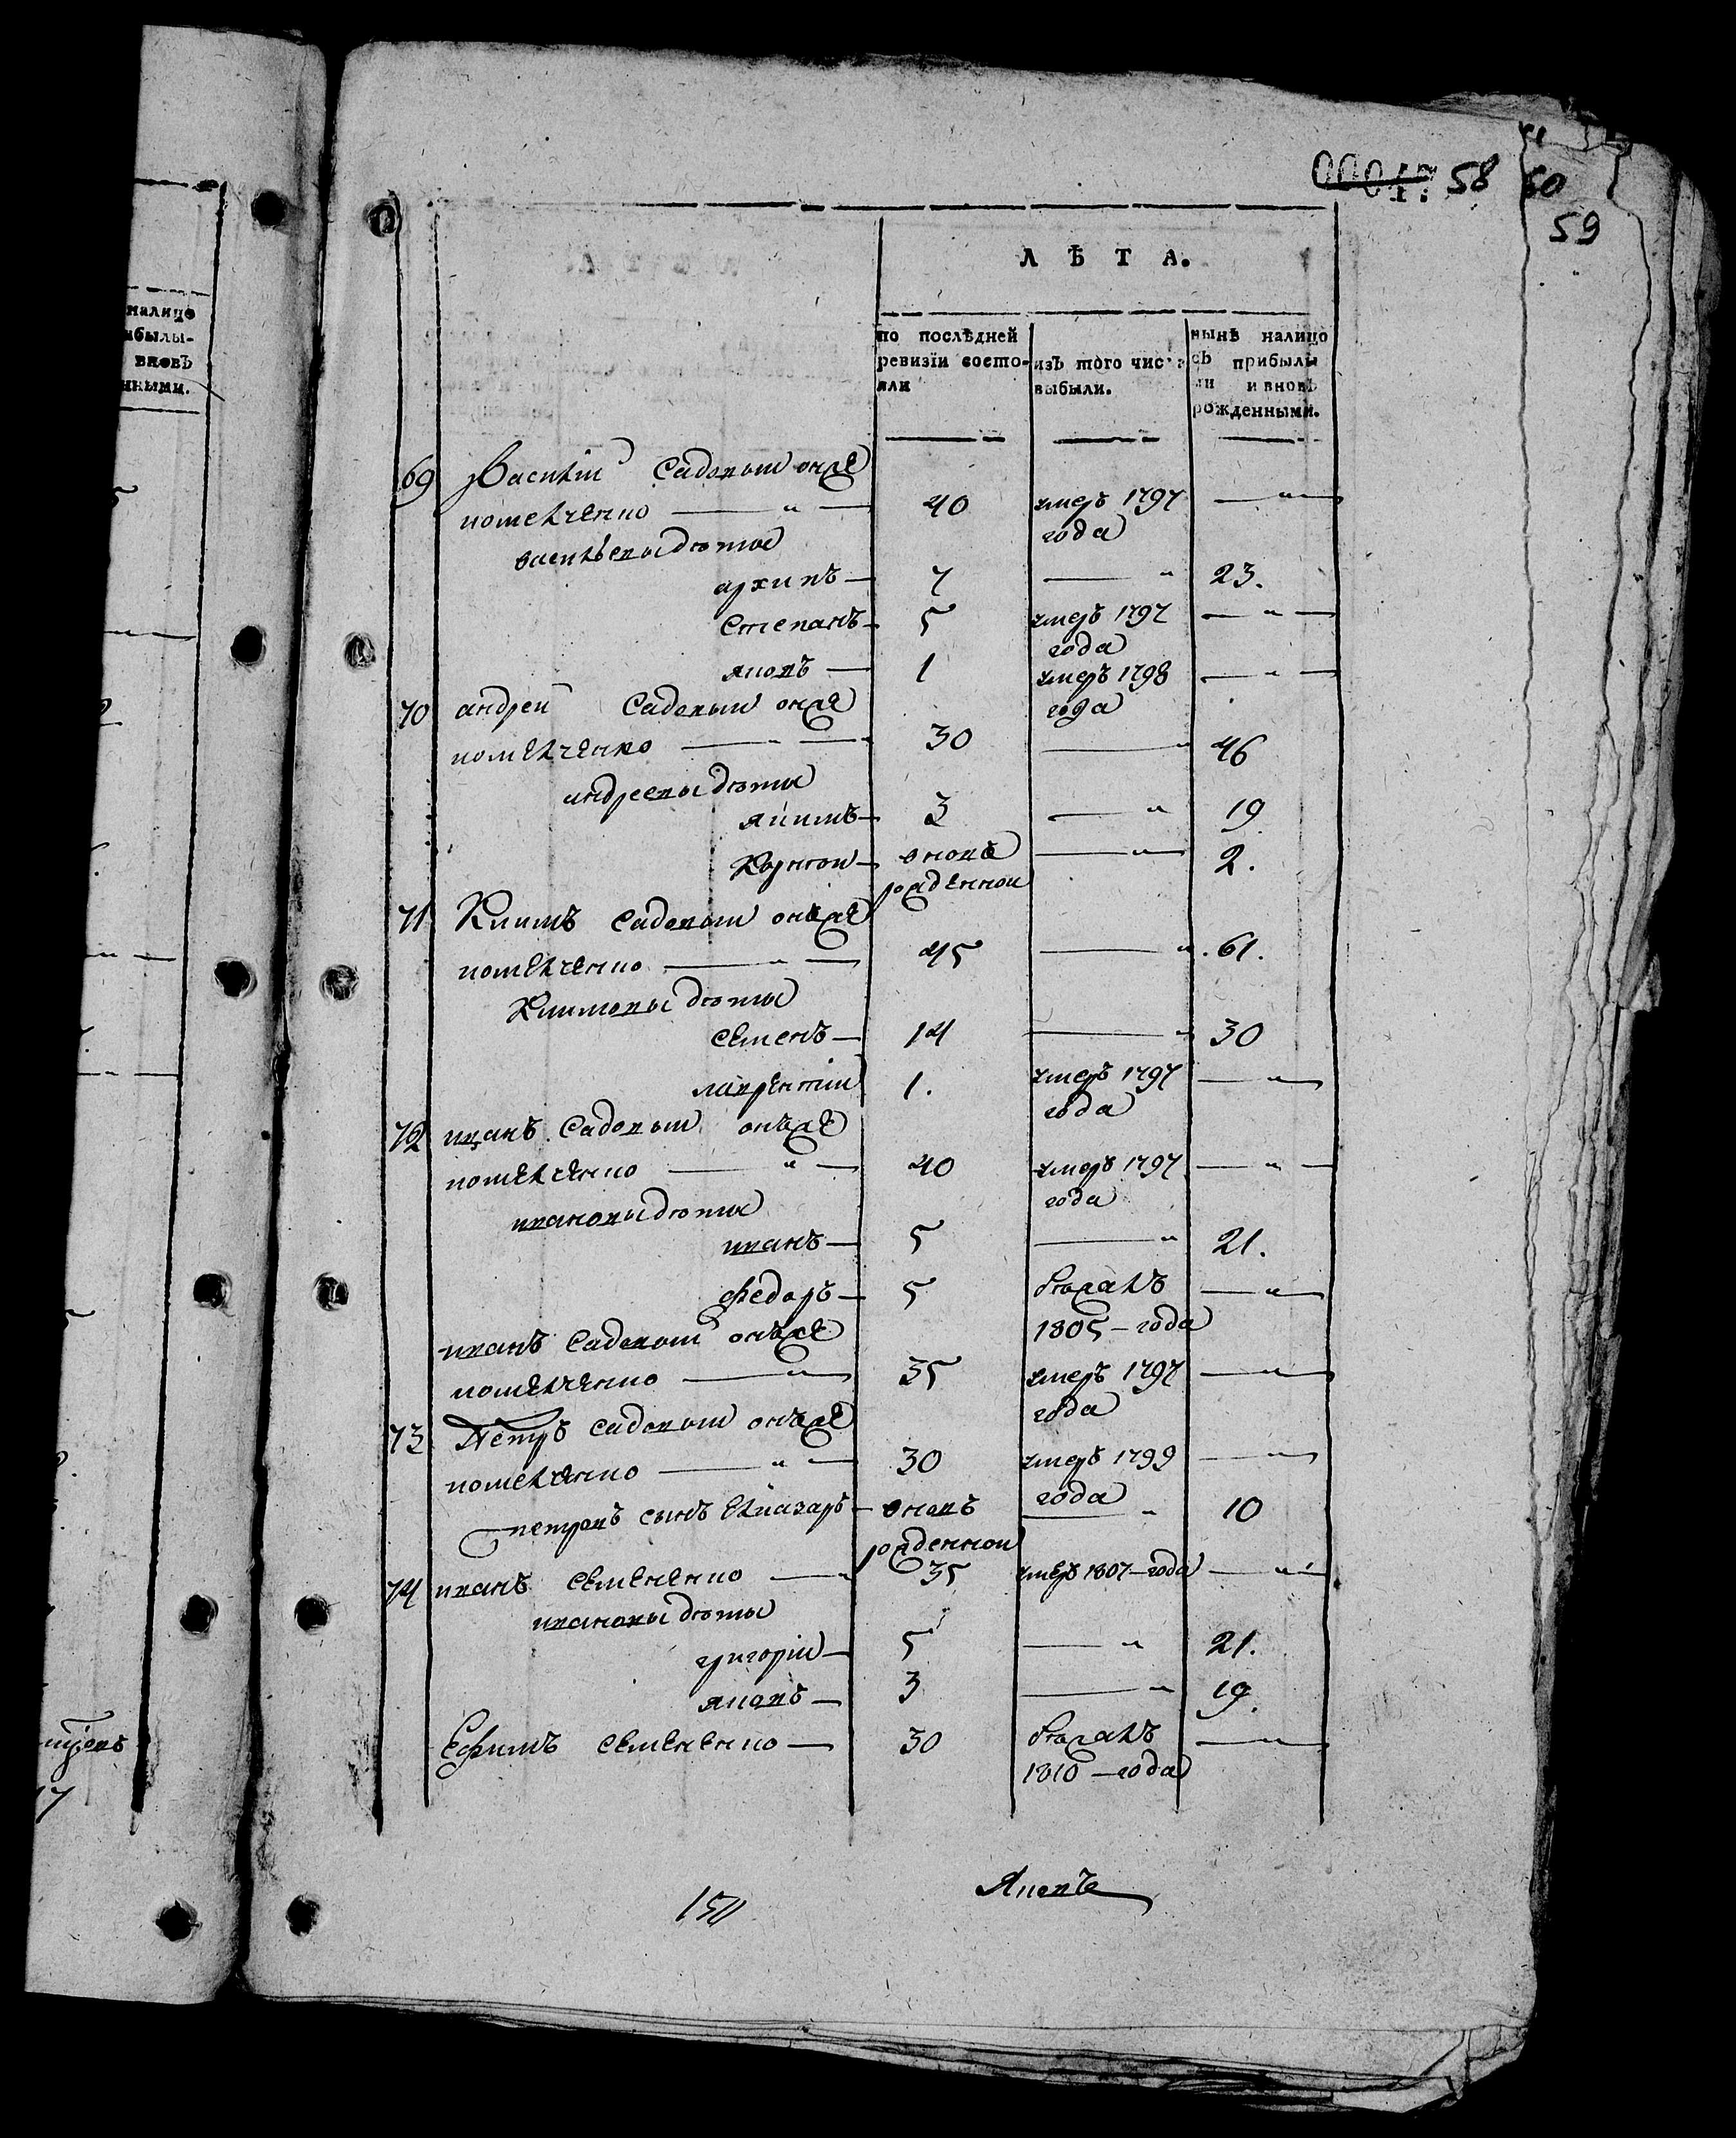 налицо
вновъ
00047 58 60
59
ЛѢТА.
по послѣдней
ревизїи состо-
яли
изъ того числа
выбыли.
нынѣ налицо
съ прибылы
ми и вновь
рожденными.
69 Василіи Садовыи онже
потелченко — " — 40 умеръ 1797 — " —
года
васильевы дѣти
архипъ — 7 — " 23.
Степанъ — 5 умеръ 1797 — " —
года
яковъ — 1 умеръ 1798 — " —
года
70 андреи Садовыи онже
потелченко — " — 30 — " 46
андреевы дѣти
якимъ — 3 — " 19
Корнѣи — вновь — " 2.
рожденнои
71 Климъ Садовыи онъже
потелченко — " — 45 — " 61.
Климовы дѣти
Семенъ — 14 — " 30
лаврентіи 1. умеръ 1797 — " —
года
72 иванъ Садовыи онъже
потелченко — " — 40 умеръ 1797 — " —
года
ивановы дѣти
иванъ — 5 — " 21.
федоръ — 5 бѣжалъ — " —
1805 – года
иванъ Садовыи онъже
потелченко — " — 35 умеръ 1797 — " —
года
73 Петръ Садовыи онъже
потелченко — " — 30 умеръ 1799 — " —
года
петровъ сынъ елиазаръ — вновъ — " 10
рожденнои
74 иванъ Семененко — " 35 умеръ 1807 – года — " —
ивановы дѣти
григоріи — 5 — " 21.
яковъ — 3 — " 19.
Ефимъ Семененко — 30 бѣжалъ — " —
1810 – года
Яковъ